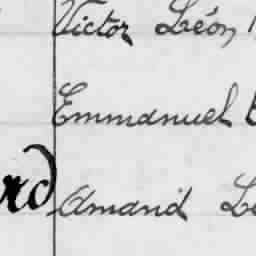 Victor Léon
Emmanuel
rd Amand